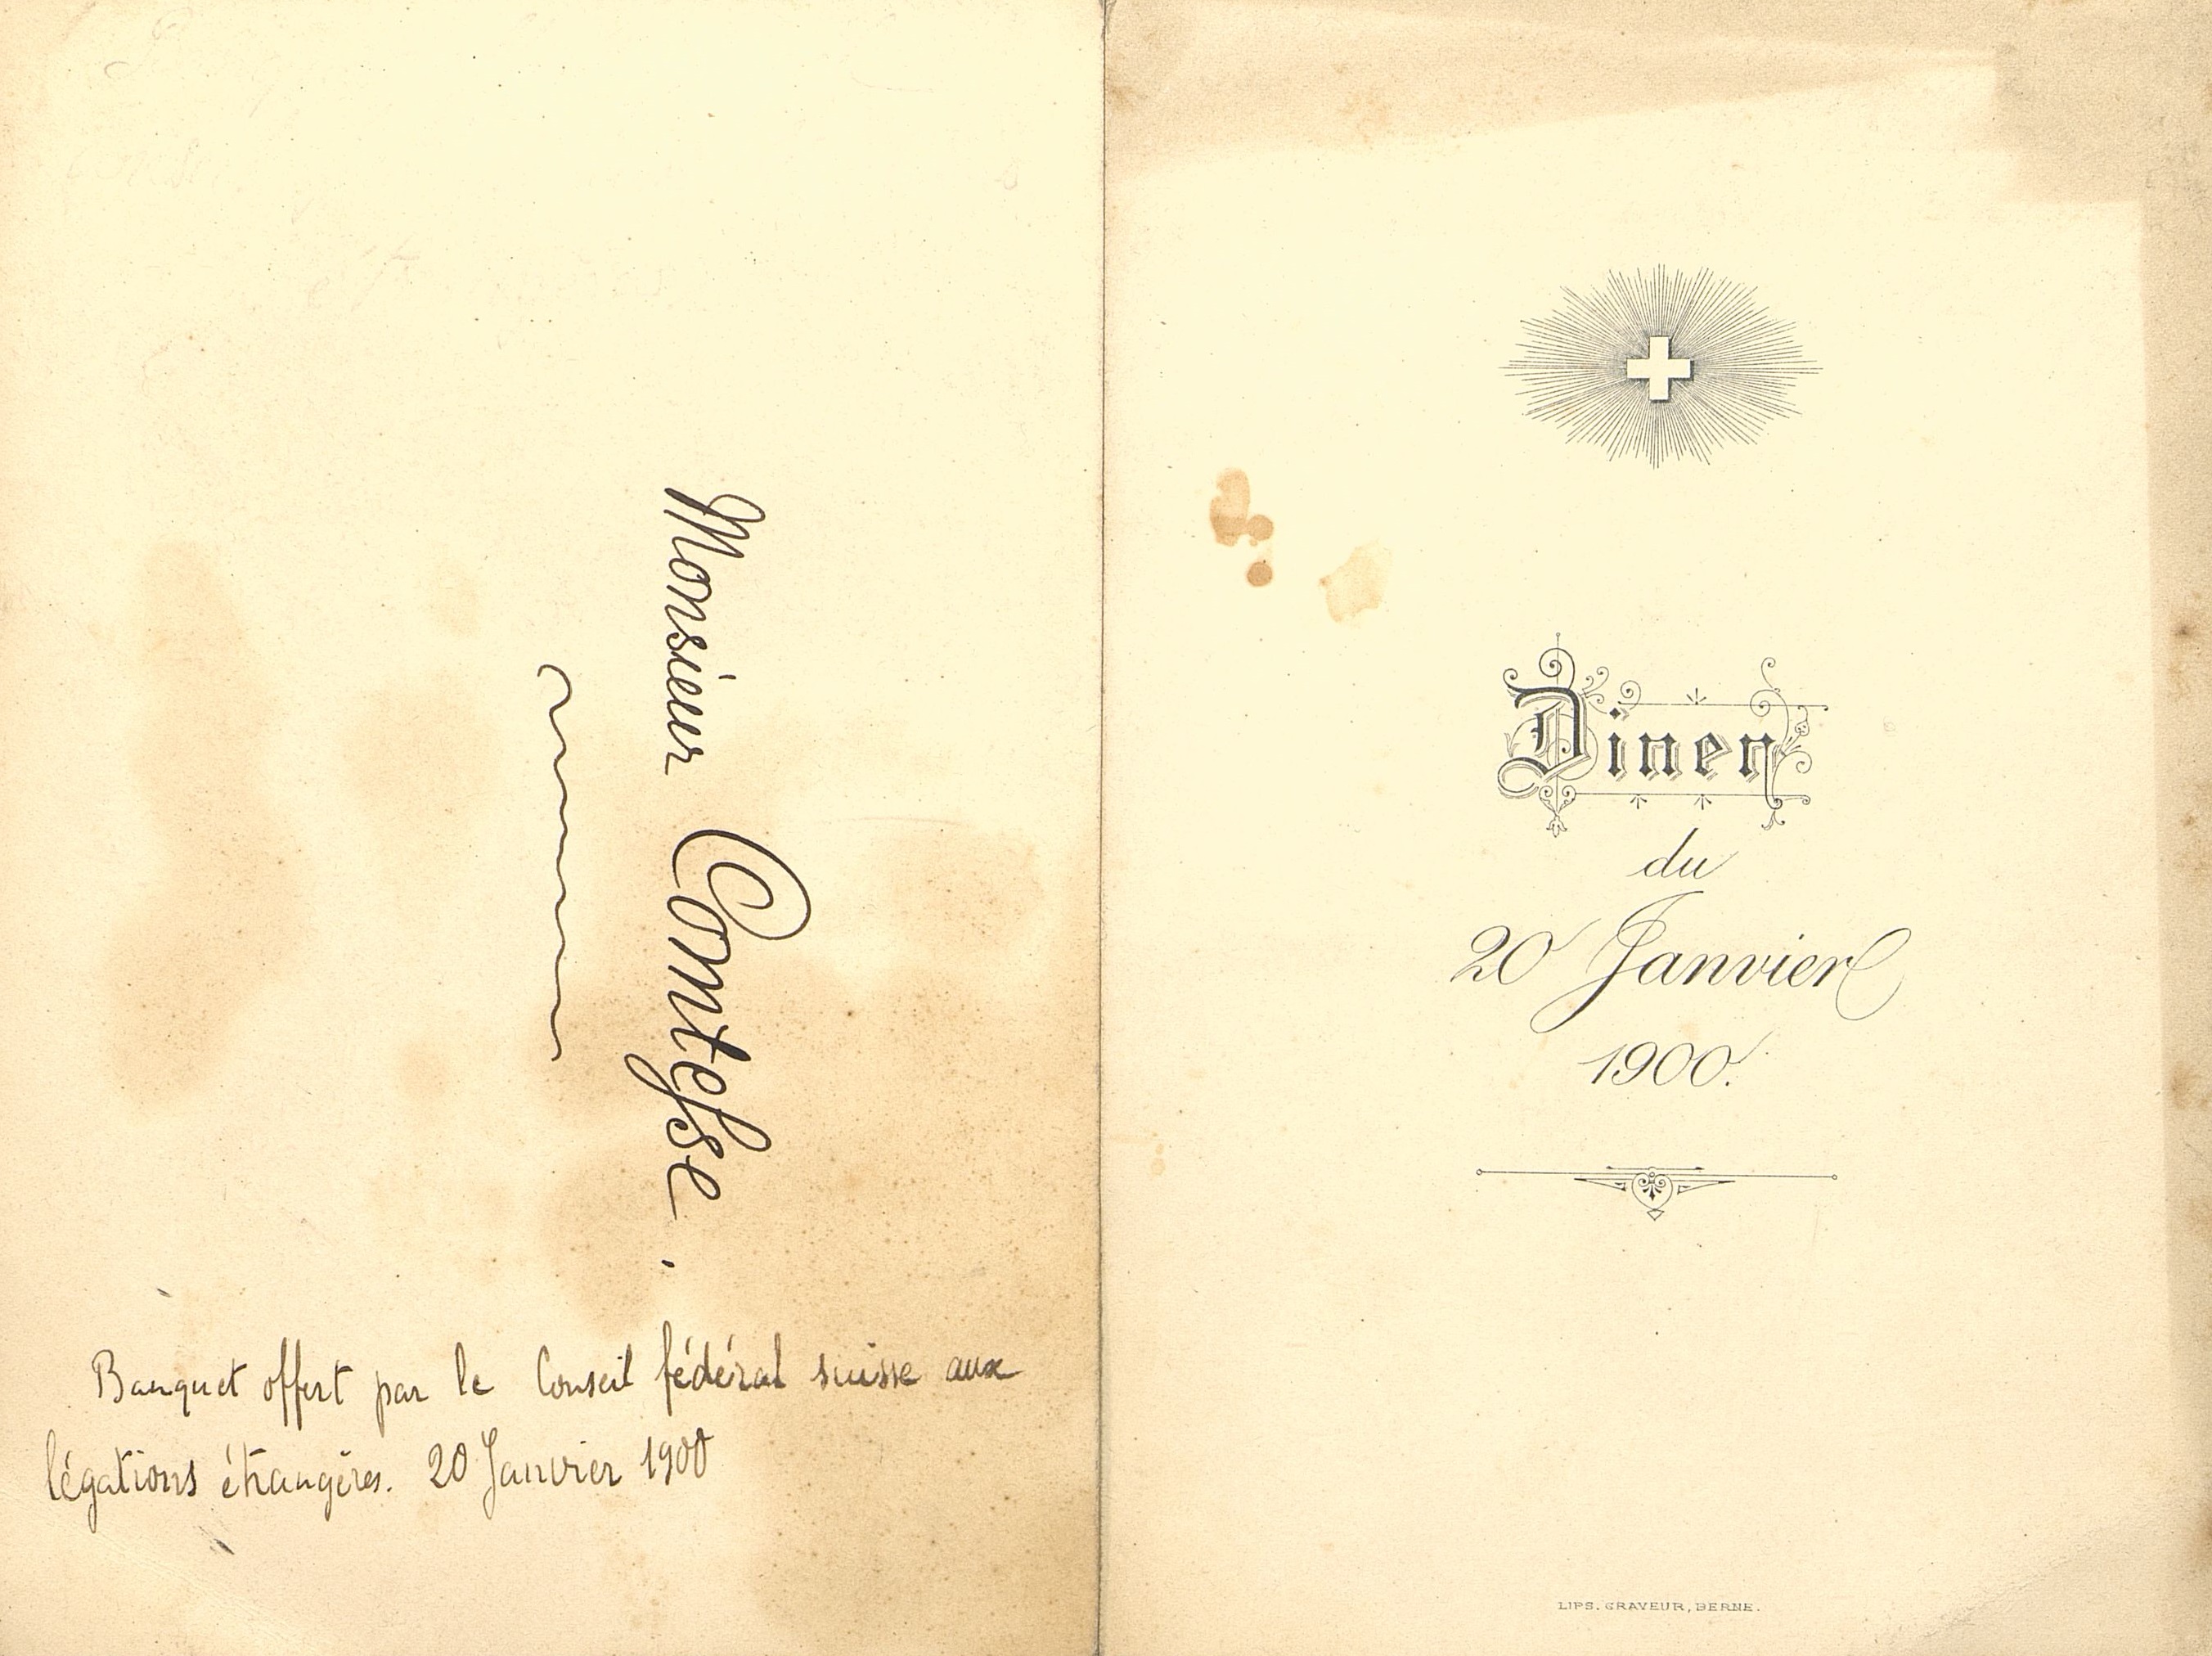 Monsieur Comtesse.
Banquet offert par le Conseil fédéral suisse aux
légations étrangères. 20 Janvier 1900
Diner
du
20 Janvier
1900.
LIPS. GRAVEUR, BERNE.